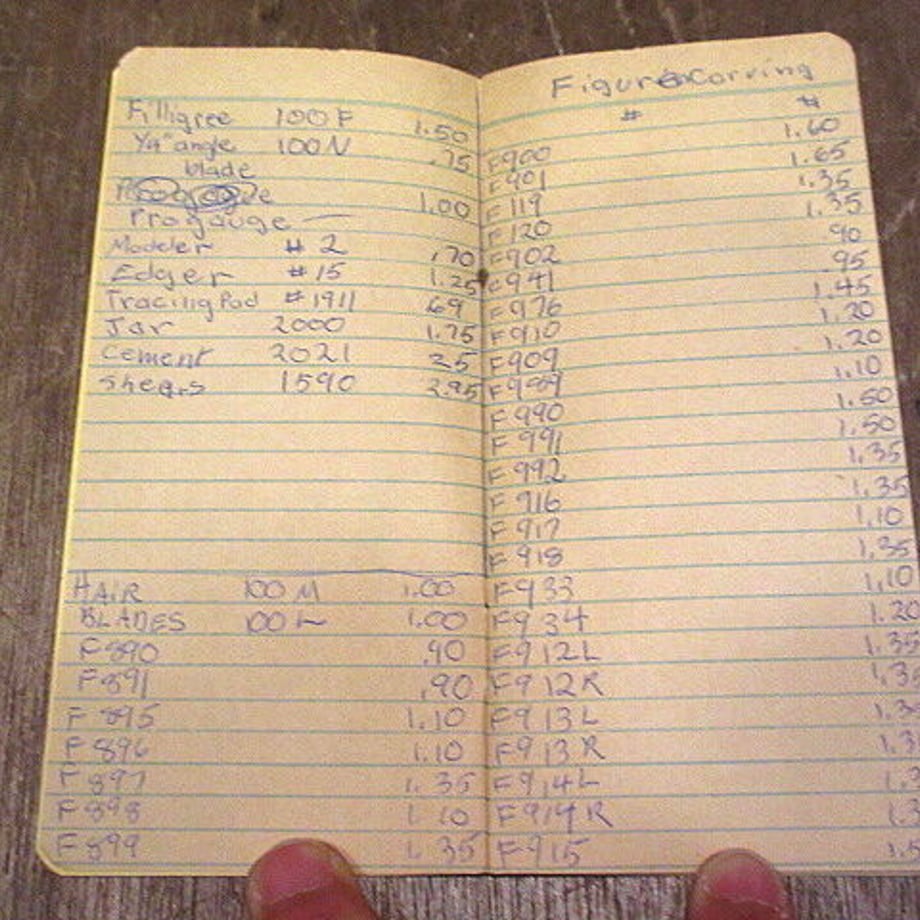 Filligree 100F 1.50
Ya" angle 100N .75
blade
1.00
Pro gauge —
Modeler # 2 .70
Edger # 15 1.25
Tracing Pad # 1911 69
Jar 2000 1.75
Cement 2021 25
Shears 1590 2.95
HAIR 100 M 1.00
BLADES 100 L 1.00
F 890 .90
F 891 .90
F 895 1.10
F 896 1.10
F 897 1.35
F 898 1 10
F 899 1 35
Figure Carving
# #
F900 1.60
F901 1.65
F119 1.35
F120 1.35
F902 90
F941 95
F976 1.45
F910 1.20
F909 1.20
F989 1.10
F990 1.50
F991 1.50
F992 1.35
F916 1.35
F917 1.10
F918 1.35
F933 1.10
F934 1.20
F912L 1.35
F912R 1.3
F913L 1.3
F913R 1.3
F914L 1.3
F914R 1.3
F915 1.5